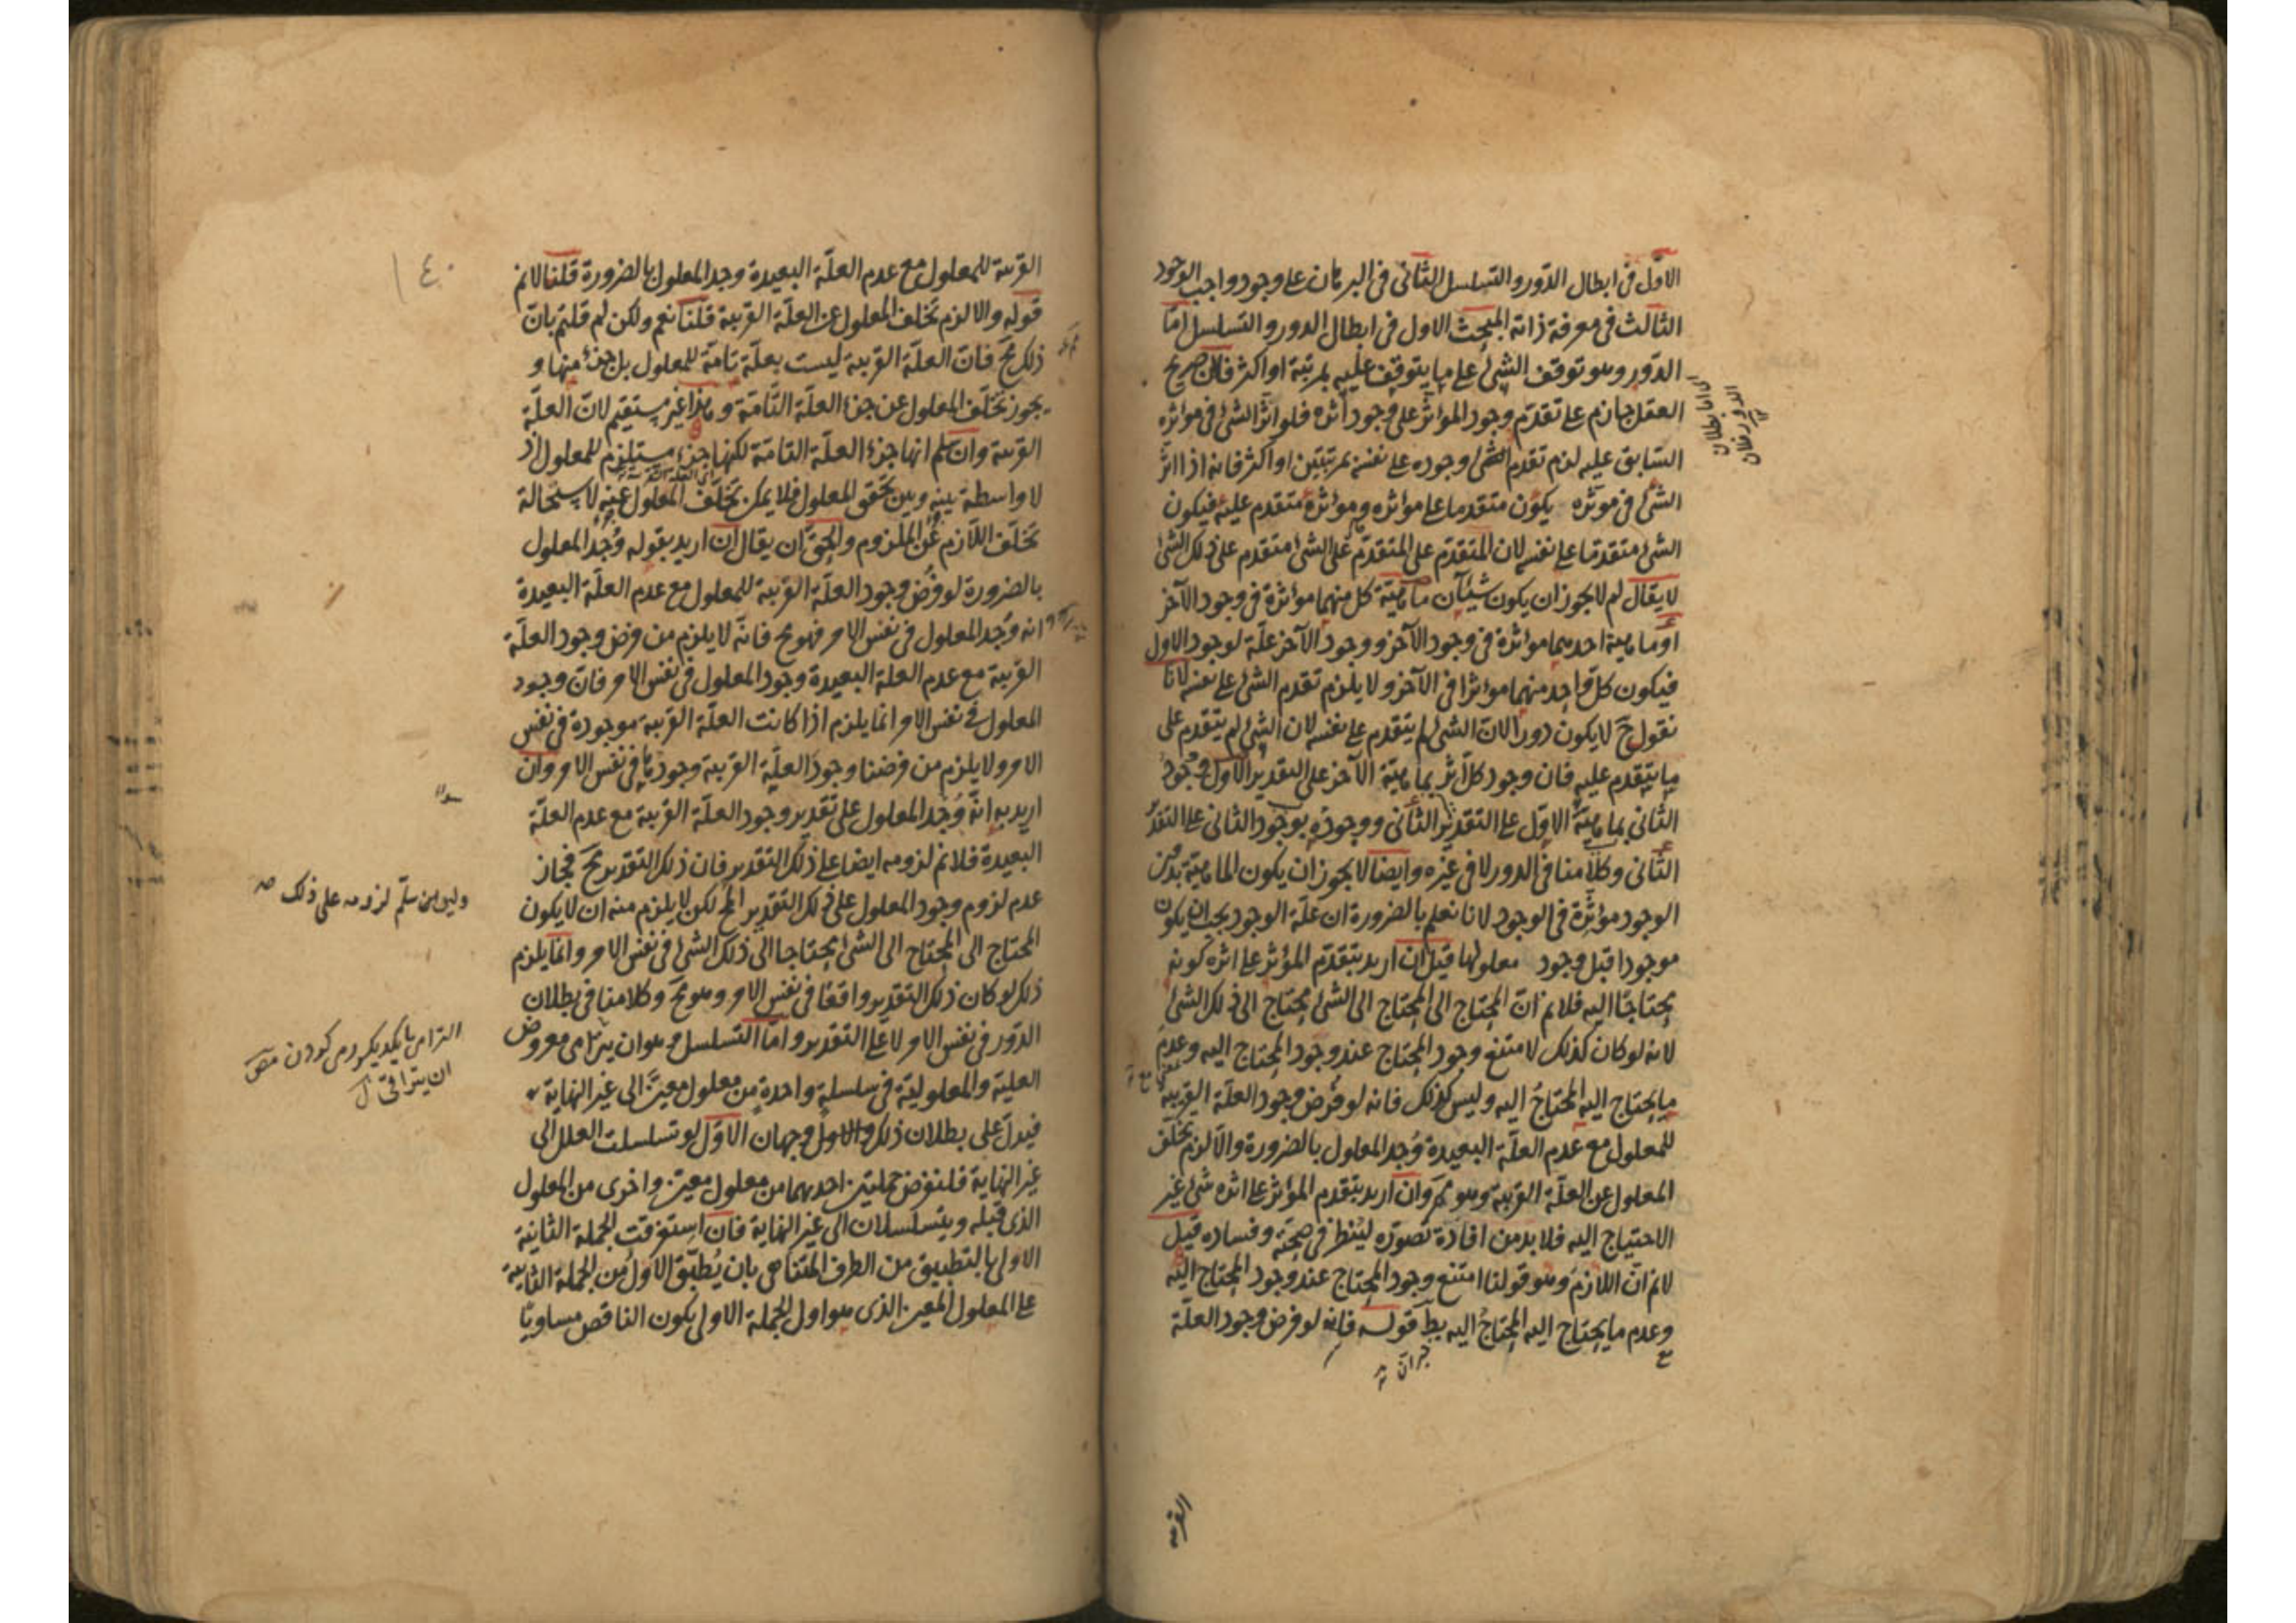 الاوّل فى ابطال الدّور والتسلسل الثانى فى البرهان على وجود واجب الوجود
الثالث فى معرفة ذاته المبحث الاول فى ابطال الدور والتسلسل امّا
الدّور وهو توقف الشئ على ما يتوقف عليه بمرتبة او اكثر فلان صريح
العقل جازم على تقدّم وجود المؤثر على وجود اثره فلو اثّر الشئ فى مؤثره
السّابق عليه لزم تقدم وجوده على نفسه بمرتبتين او اكثر فانه اذا اثّر
الشئ فى مؤثره يكون متقدما على مؤثره ومؤثره متقدم عليه فيكون
الشئ متقدما على نفسه لان المتقدّم على المتقدّم على الشئ متقدم على ذلك الشئ
لا يقال لم لا يجوز ان يكون شيئان ماهيّة كل منهما مؤثرة فى وجود الآخر
او ماهية احدهما مؤثرة فى وجود الآخر ووجود الآخر علّة لوجود الاول
فيكون كل واحد منهما مؤثرا فى الآخر ولا يلزم تقدم الشئ على نفسه لانا
نقول ح لا يكون دورا لان الشئ لم يتقدم على نفسه لان الشئ لم يتقدم على
ما يتقدم عليه فان وجود كل اثر بماهيّة الآخر على التقدير الاول ووجود
الثانى بماهيّة الاوّل على التقدير الثانى ووجوده بوجود الثانى على التقدير
الثّانى وكلامنا فى الدور لا فى غيره وايضا لا يجوز ان يكون الماهيّة بدون
الوجود مؤثّرة فى الوجود لانا نعلم بالضرورة ان علّة الوجود يجب ان يكون
موجودا قبل وجود معلولها قيل ان اريد بتقدّم المؤثر على اثره كونه
محتاجًا اليه فلا نم انّ المحتاج الى المحتاج الى الشئ محتاج الى ذلك الشئ
لانه لو كان كذلك لامتنع وجود المحتاج عند وجود المحتاج اليه وعدم
ما يحتاج اليه المحتاجُ اليه وليس كذلك فانه لو فُرض وجود العلّة القريبة
للمعلول مع عدم العلّة البعيدة وُجد المعلول بالضرورة والّا لزم تخلّف
المعلول عن العلّة القريبة وهو مح وان اريد بتقدم المؤثر على اثره شئ غير
الاحتياج اليه فلا بد من افادة تصوّره لينظر فى صحته وفساده قيل
لا نم انّ اللّازم وهو قولنا امتنع وجود المحتاج عند وجود المحتاج اليه
وعدم ما يحتاج اليه المحتاجُ اليه بط قوله فانه لو فرض وجود العلّة
القريبة
القريبة للمعلول مع عدم العلّة البعيدة وجد المعلول بالضرورة قلنا لا نم
قوله والا لزم تخلف المعلول عن العلّة القريبة قلنا نعم ولكن لم قلتم بانّ
ذلك مح فانّ العلّة القريبة ليست بعلّة تامّة للمعلول بل جزء منها و
يجوز تخلّف المعلول عن جزء العلّة التّامّة وهذا غير مستقيم لانّ العلّة
القريبة وان سلم انها جزء العلّة التامّة لكنها جزء مستلزم للمعلول اذ
لا واسطة بينه وبين تحقق المعلول فلا يمكن تخلّف المعلول عنه لاستحالة
تخلّف اللّازم عن الملزوم والحقّ ان يقال ان اريد بقوله وُجد المعلول
بالضرورة لو فُرض وجود العلّة القريبة للمعلول مع عدم العلّة البعيدة
انه وُجد المعلول فى نفس الامر فهو مح فانّه لا يلزم من فرض وجود العلّة
القريبة مع عدم العلة البعيدة وجود المعلول فى نفس الامر فانّ وجود
المعلول فى نفس الامر انما يلزم اذا كانت العلّة القريبة موجودة فى نفس
الامر ولا يلزم من فرضنا وجود العلّة القريبة وجودها فى نفس الامر وان
اريد به انّه وُجد المعلول على تقدير وجود العلّة القريبة مع عدم العلّة
البعيدة فلا نم لزومه ايضا على ذلك التقدير فان ذلك التقدير مح فجاز
عدم لزوم وجود المعلول على ذلك التقدير المح لكن لا يلزم منه ان لا يكون
المحتاج الى المحتاج الى الشئ محتاجا الى ذلك الشئ فى نفس الامر وانّما يلزم
ذلك لو كان ذلك التقدير واقعًا فى نفس الامر وهو مح وكلامنا فى بطلان
الدّور فى نفس الامر لا على التقدير وامّا التسلسل وهو ان يترامى معروض
العلية والمعلوليّة فى سلسلة واحدة من معلول معيّن الى غير النهاية
فيدلّ على بطلان ذلك وجهان الاوّل لو تسلسلت العلل الى
غير النهاية فلنفرض جملتين احدهما من معلول معين واخرى من المعلول
الذى قبله ويتسلسلان الى غير النهاية فان استغرقت الجملة الثانية
الاولى بالتطبيق من الطرف المتناهى بان يُطبّق الاول من الجملة الثانية
على المعلول المعين الذى هو اول الجملة الاولى يكون الناقص مساويًا
١٤٠
ولين سلّم لزومه على ذلك